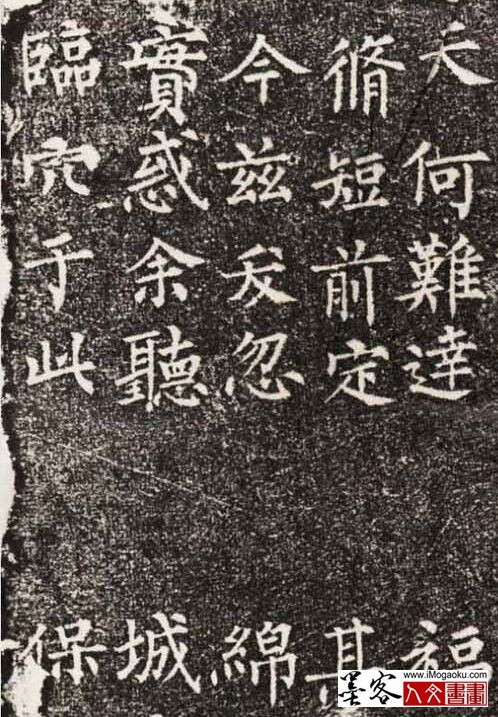 天何難達 福
脩短前定 其
今茲忽 綿
實惑余聽 城
臨穴于此 保
www.iMogaoku.com
墨客人文書畫